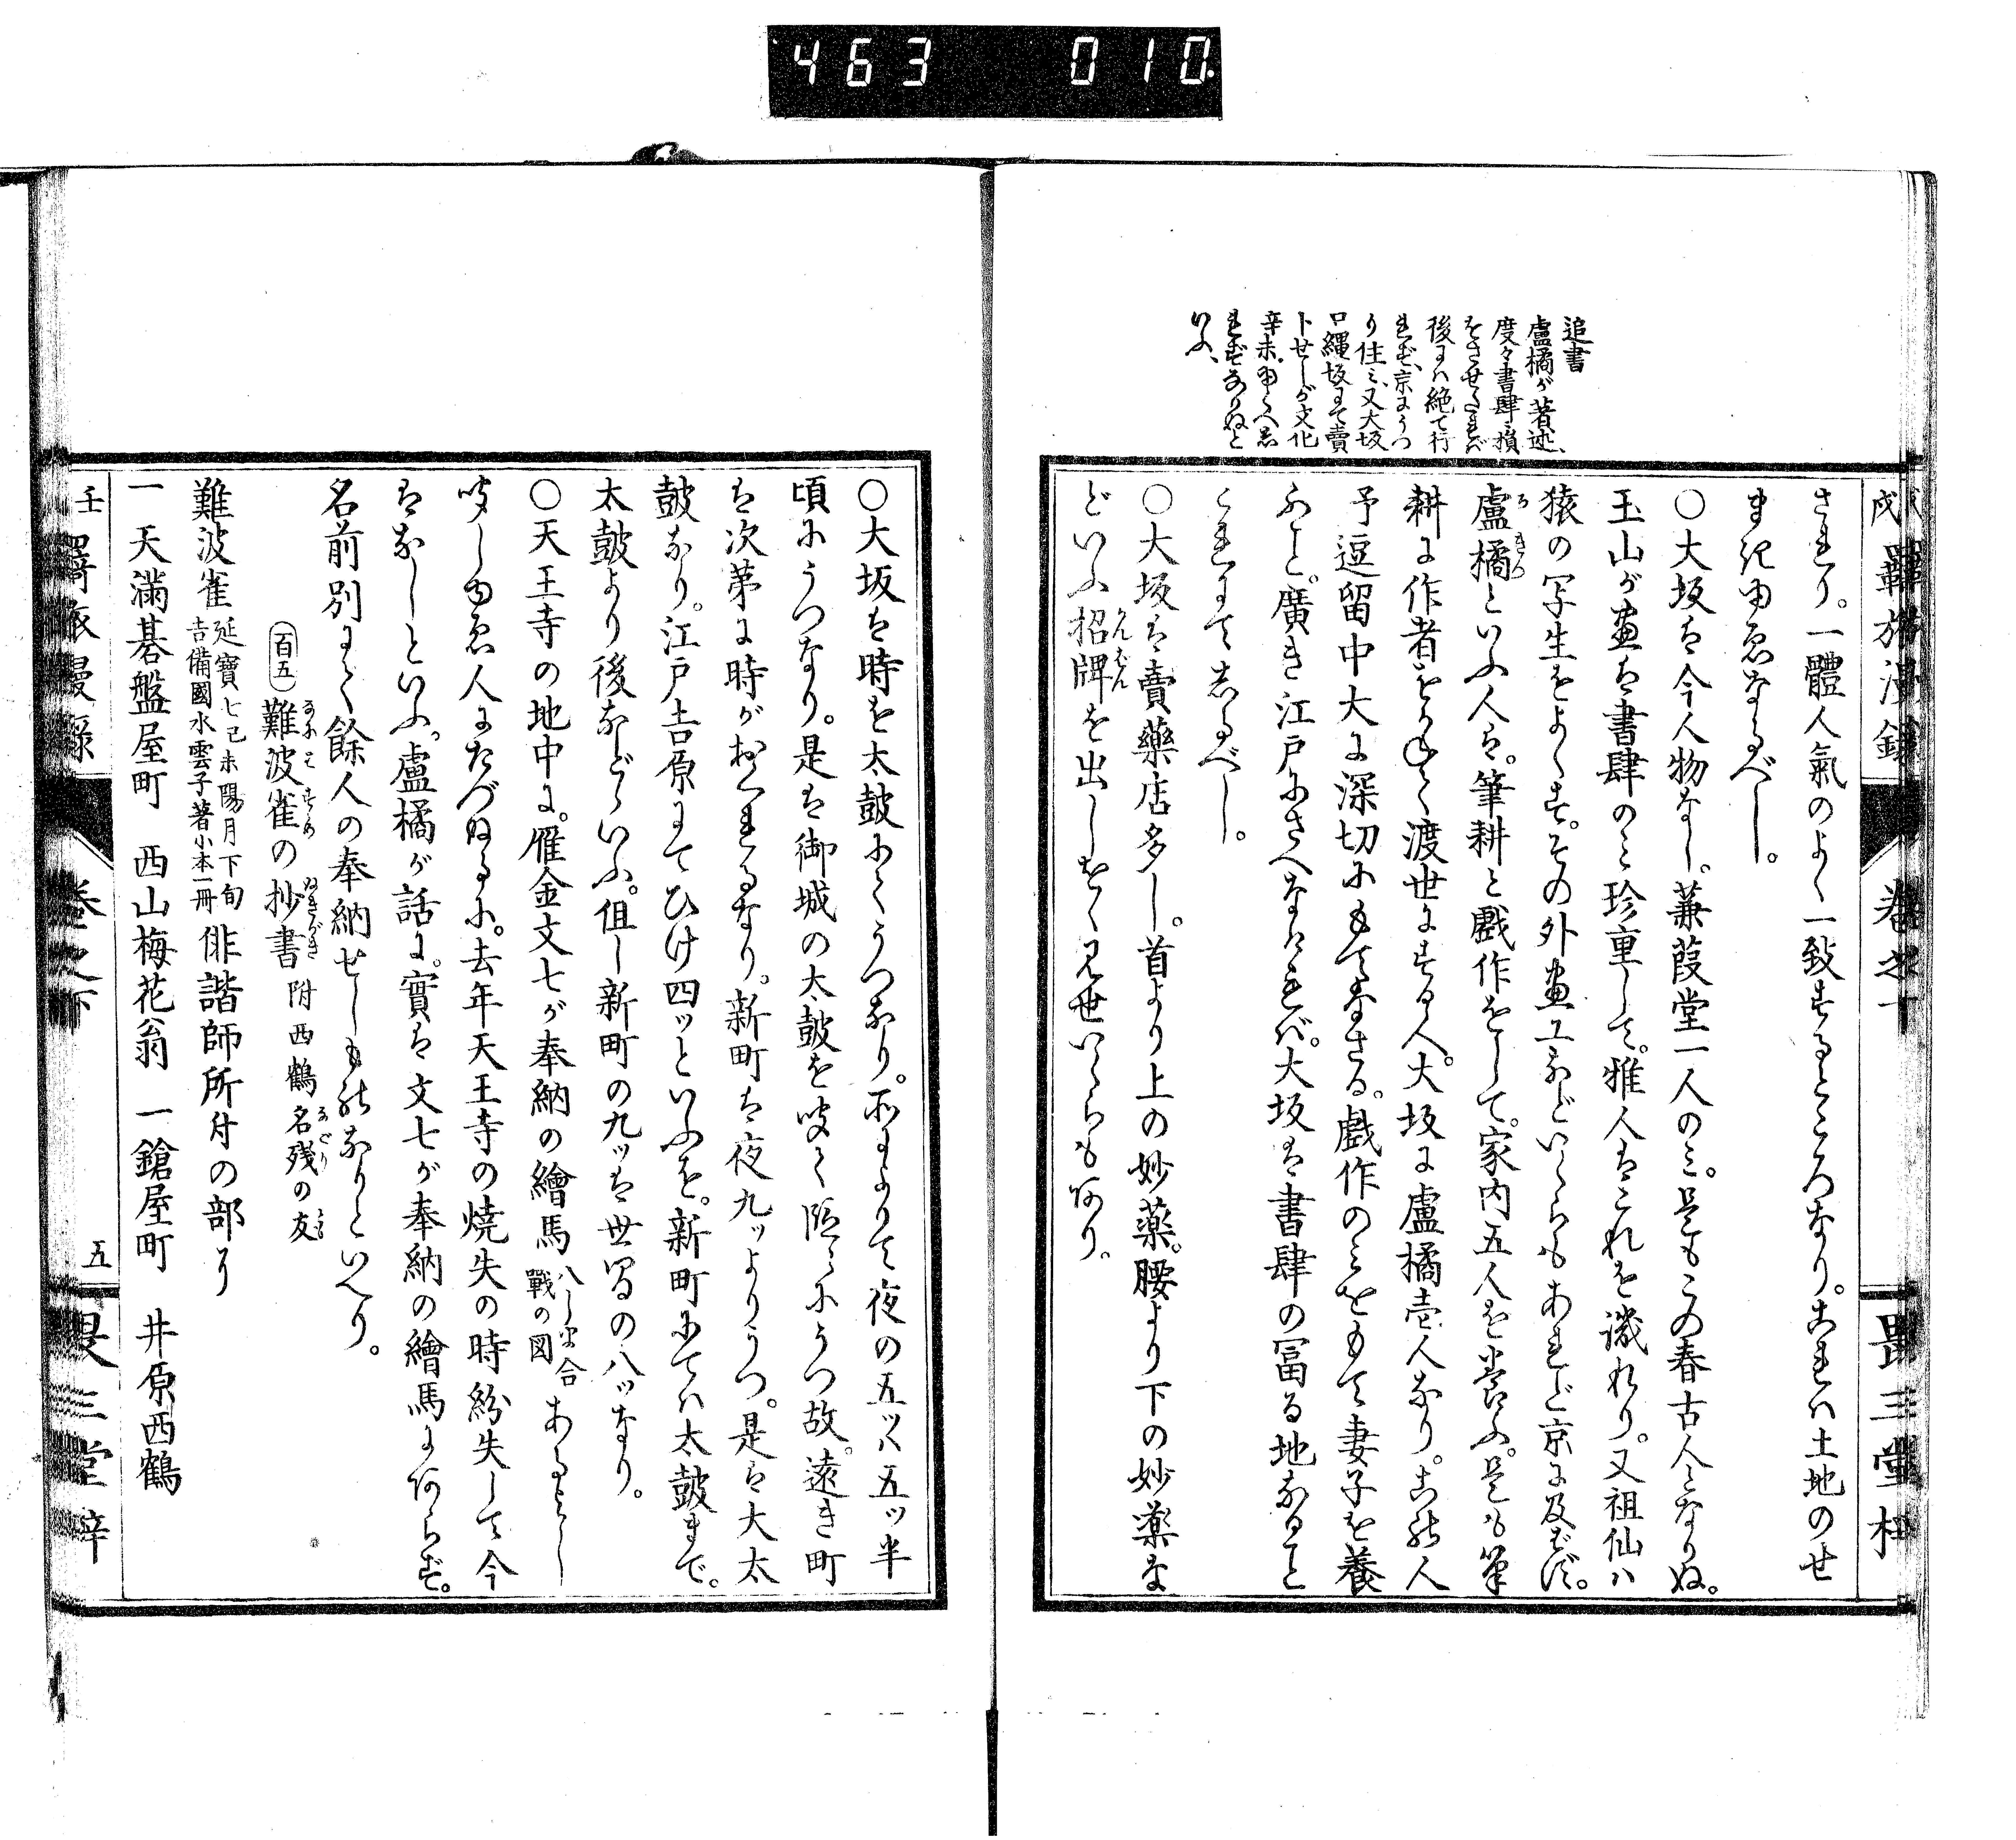 463 010
追書
盧橘が著述、
度々書肆に損
をさせたれば
後には絶て行
れず、京にうつ
り住み、又大坂
口縄坂にて賣
卜せしが文化
辛未
れずなりぬと
いふ、
戌 羇旅漫録 巻之下 畏三堂梓
されり。一體人氣のよく一致するところなり。これハ土地のせ
まきゆゑなるべし。
○大坂は今人物なし。蒹葭堂一人のミ。是もこの春古人となりぬ。
玉山が画は書肆のミ珍重して。雅人はこれを譏れり。又祖仙ハ
猿の写生をよくす。その外画工などいくらもあれど京に及ばず。
盧橘といふ人は。筆耕と戯作をして。家内五人を養ふ。是も筆
耕に作者をかねて渡世にする人。大坂に盧橘壱人なり。この人
予逗留中大に深切にもてなさる。戯作のミをもて妻子を養
ふこと。廣き江戸にさへなければ。大坂は書肆の冨る地なること
これにてしるべし。
○大坂は賣藥店多し。首より上の妙薬。腰より下の妙薬な
どいふ招牌を出しをく見世いくらもあり。
○大坂は時を太鼓にてうつなり。所によりて夜の五ツハ五ツ半
頃にうつなり。是は御城の太鼓を聞て段々にうつ故。遠き町
は次第に時がおくれるなり。新町は夜九ツよりうつ。是は大太
鼓なり。江戸吉原にてひけ四ツといふを。新町にてハ太鼓まで。
太鼓より後などゝいふ。但し新町の九ツは世間の八ツなり。
○天王寺の地中に。雁金文七が奉納の繪馬 八しま合戰の図 あるよし
聞しゆゑ人にたづぬるに。去年天王寺の焼失の時紛失して今
はなしといふ。盧橘が話に。實は文七が奉納の繪馬にあらず。
名前別にて餘人の奉納せしものなりといへり。
百五 難波雀の抄書 附西鶴名残の友
難波雀 延寶七己未陽月下旬 吉備國水雲子著小本一冊 俳諧師所付の部り
一 天滿碁盤屋町 西山梅花翁 一鎗屋町 井原西鶴
壬 羇旅漫録 巻之下 五 畏三堂梓